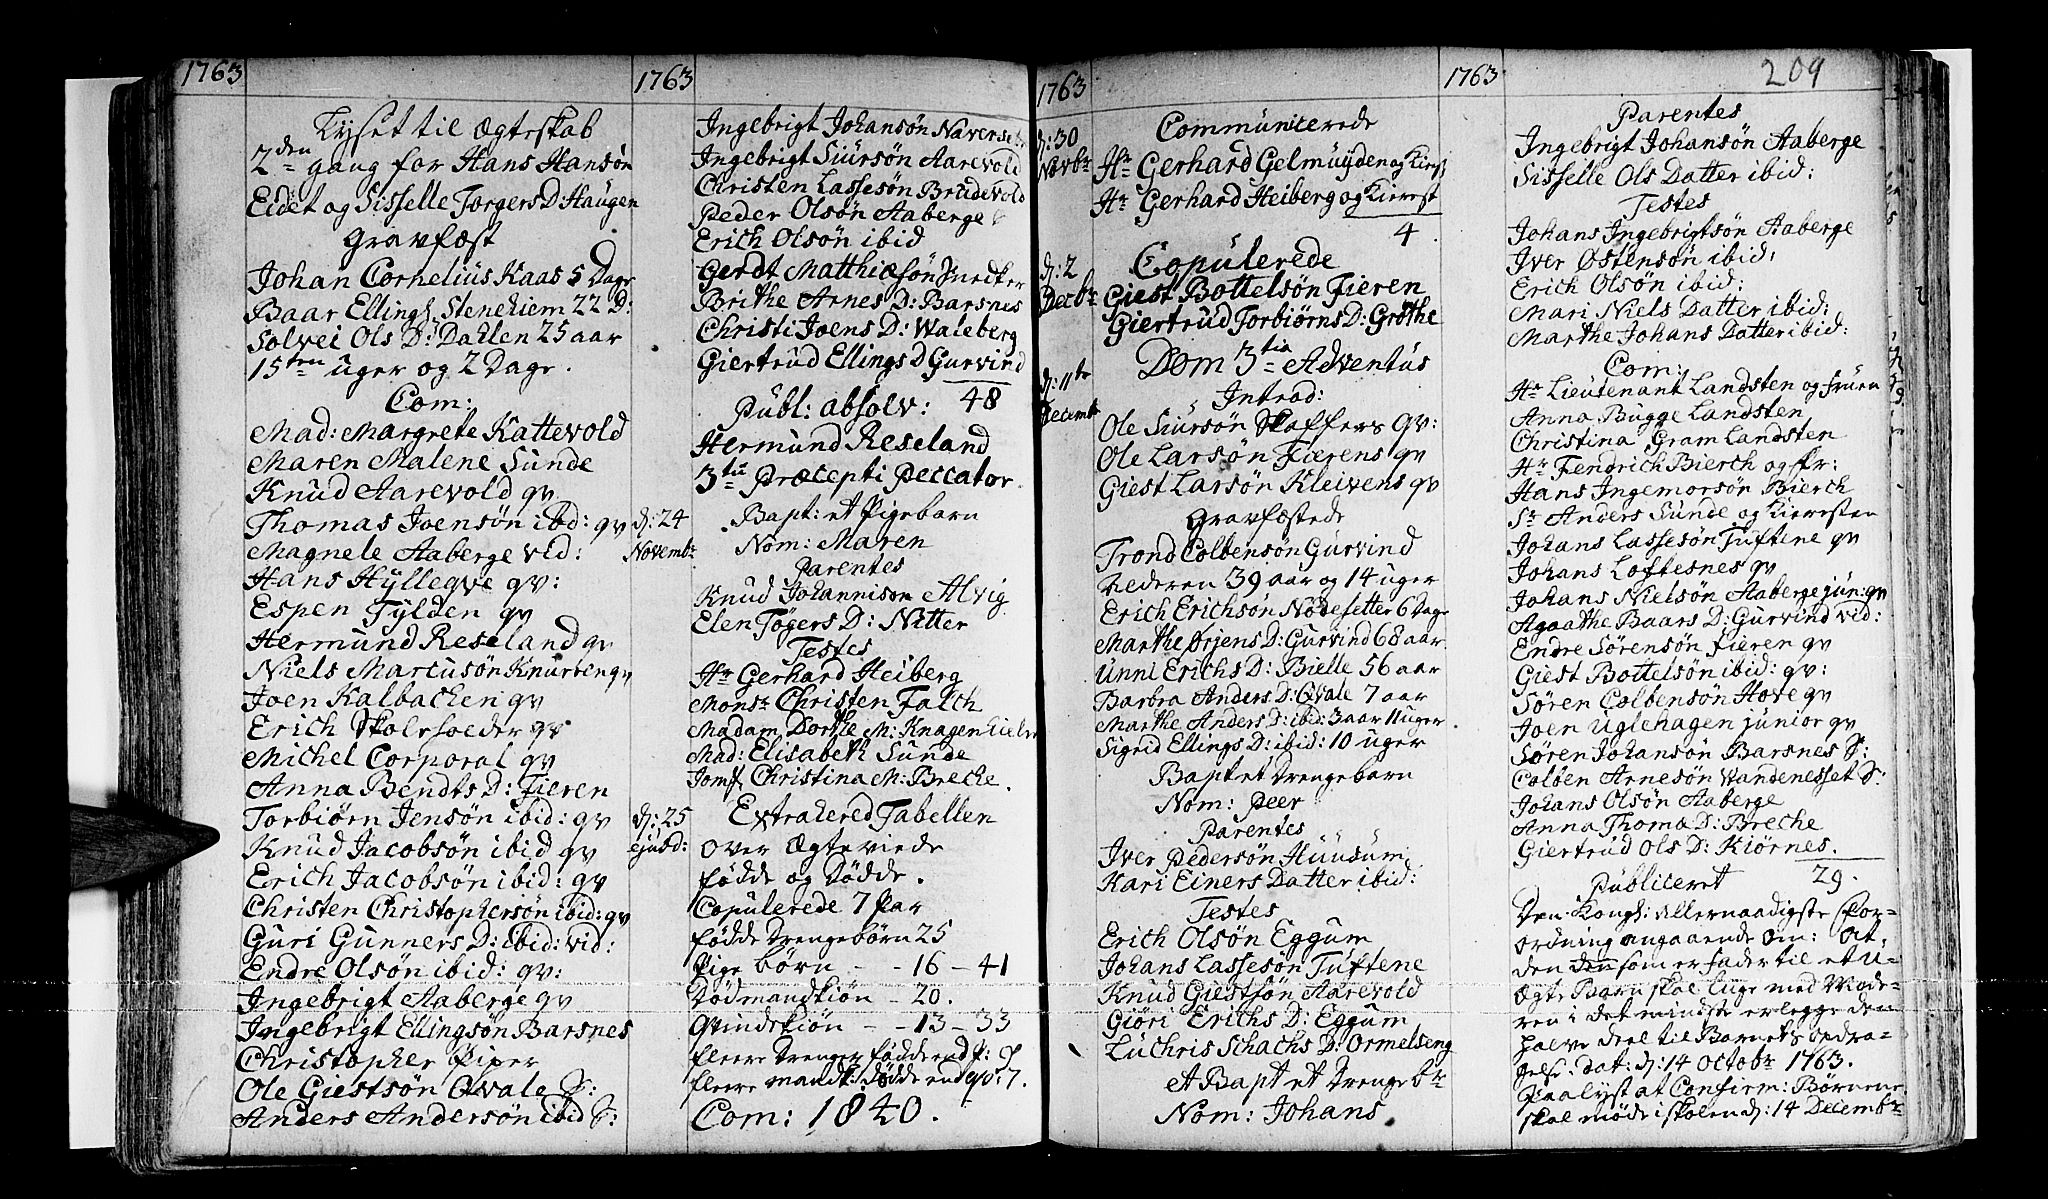 1763
Lyset til Ægteskab
2den gang for Hans Hansøn
Eidet og Sisselle Torgers D: Haugen
Gravfæst
Johan Cornelius Kaas 5 Dage
Baar Ellings. Stenehiem 22 D:
Solvei Ols D: Dahlen 25 aar
15ten uger og 2 Dage.
Com:
Mad: Margrete Kattevold
Maren Malene Sunde
Knud Aarevold qv
Thomas Joensøn ibd: qv
Magnele Aaberge vid:
Hans Hyllegve qv:
Espen Tylden qv
Hermund Reseland qv
Niels Marcusøn Knurten qv
Joen Kalbachen qv
Erich qv
Michel Corporal qv
Anna Bendts D: Fieren
Torbiørn Jensøn ibid: qv
Knud Jacobsøn ibid qv
Erich Jacobsøn ibid: qv
Christen Christophersøn ibid: qv
Guri Gunners D: ibid: vid:
Endre Olsøn ibid: qv:
Ingebrigt Aaberge qv
Ingebrigt Ellingsøn Barsnes
Christopher Piper
Ole Giestsøn Qvale S:
Anders Andersøn ibid S:
1763
Ingebrigt Johansøn
Ingebrigt Siursøn Aarevold
Christen Lassesøn Brudevold
Peder Olsøn Aaberge
Erich Olsøn ibid
Gerdt Matthiesøn Snedker
Brithe Arnes D: Barsnes
Christi Joens D: Waleberg
Giertrud Ellings D Gurvind
48
Publ: absolv:
Hermund Reseland
3tii Præcepti Peccator
d: 24 Novembr
Bapt: et Pigebarn
Nom: Maren
Parentes
Knud Johannison Alvig
Elen Tøgers D: Nitter
Testes
Hr Gerhard Heiberg
Monsr Christen Falch
Madam Dorthe M: Knagenhielm
Mad: Elisabeth Sunde
Jomf Christina M: Breche.
d: 25 ejusd:
Extradered Tabellen
over Ægteviede
fødde og Dødde.
Copulerede 7 Par
fødde Drengebørn 25
Pige børn - - 16 - 41
Dødmandkiøn - 20.
Qvindekiøn - - 13 - 33
fleere Drenger fødde end P: 9
fleere mandk: dødde end qv: 7.
Com: 1840.
1763
d: 30 Novbr
Communicerede
Hr Gerhard Gelmuyden og Kierst
Hr Gerhard Heiberg og Kierest
4
d: 2 Decbr
Copulerede
Giest Bottelsøn Fieren
Giertrud Torbiørns D: Grøthe
d: 11te Decembr
Dom 3tia Adventus
Introd:
Ole Siursøn Skaffers qv:
Ole Larsøn Fierens qv
Giest Larsøn Kleivens qv
Gravfæstede
Trond Colbensøn Gurvind
Nederen 39 aar og 14 uger
Erich Erichsøn Nødesetter 6 Dage
Marthe Ørjens D: Gurvind 68 aar
Unni Erichs D: Bielle 56 aar
Barbra Anders D: Qvale 7 aar
Marthe Anders D: ibid: 3 aar 11 uger
Sigrid Ellings D: ibid: 10 uger
Bapt et Drengebarn
Nom: Peer
Parentes
Iver Pedersøn Huusum
Kari Einers Datter ibid:
Testes
Erich Olsøn Eggum
Johans Lassesøn Tuftene
Knud Giestsøn Aarevold
Giøri Erichs D: Eggum
Luchris Schachs D: Ormelseng
et Bapt et Drengebr
Nom: Johans
1763
209
Parentes
Ingebrigt Johansøn Aaberge
Sisselle Ols Datter ibid:
Testes
Johans Ingebrigtsøn Aaberge
Iver Østensøn ibid:
Erich Olsøn ibid:
Mari Niels Datter ibid:
Marthe Johans Datter ibid:
Com:
Hr Lieutenant Landsten og Fruen
Anna Bugge Landsten
Christina Gram Landsten
Hr Fendrich Bierch og Fr:
Hans Ingemorsøn Bierch
Sr Anders Sunde og Kieresten
Johans Lassesøn Tuftene qv
Johans Loftesnes qv
Johans Nielsøn Aaberge jun: qv
Agaathe Baars D: Gurvind vid:
Endre Sørensøn Fieren qv
Giest Bottelsøn ibid: qv:
Søren Colbensøn Hove qv
Joen Uglehagen junior qv
Søren Johansøn Barsnes S:
Colben Arnesøn Vandenesset S:
Johans Olsøn Aaberge
Anna Thoma D: Breche
Giertrud Ols D: Kiørnes.
29.
Publiceret
Den Kongl: allernaadigste For-
ordning angaaende om: at,
den som er fader til et U-
ægte Barn skal lige med Mode-
ren i det mindste erlegge den
halve deel til Barnets opdra-
gelse: dat: d: 14 Octobr 1763.
Paalyst at Confirm: Børnene
skal møde i skolen d: 14 Decembr